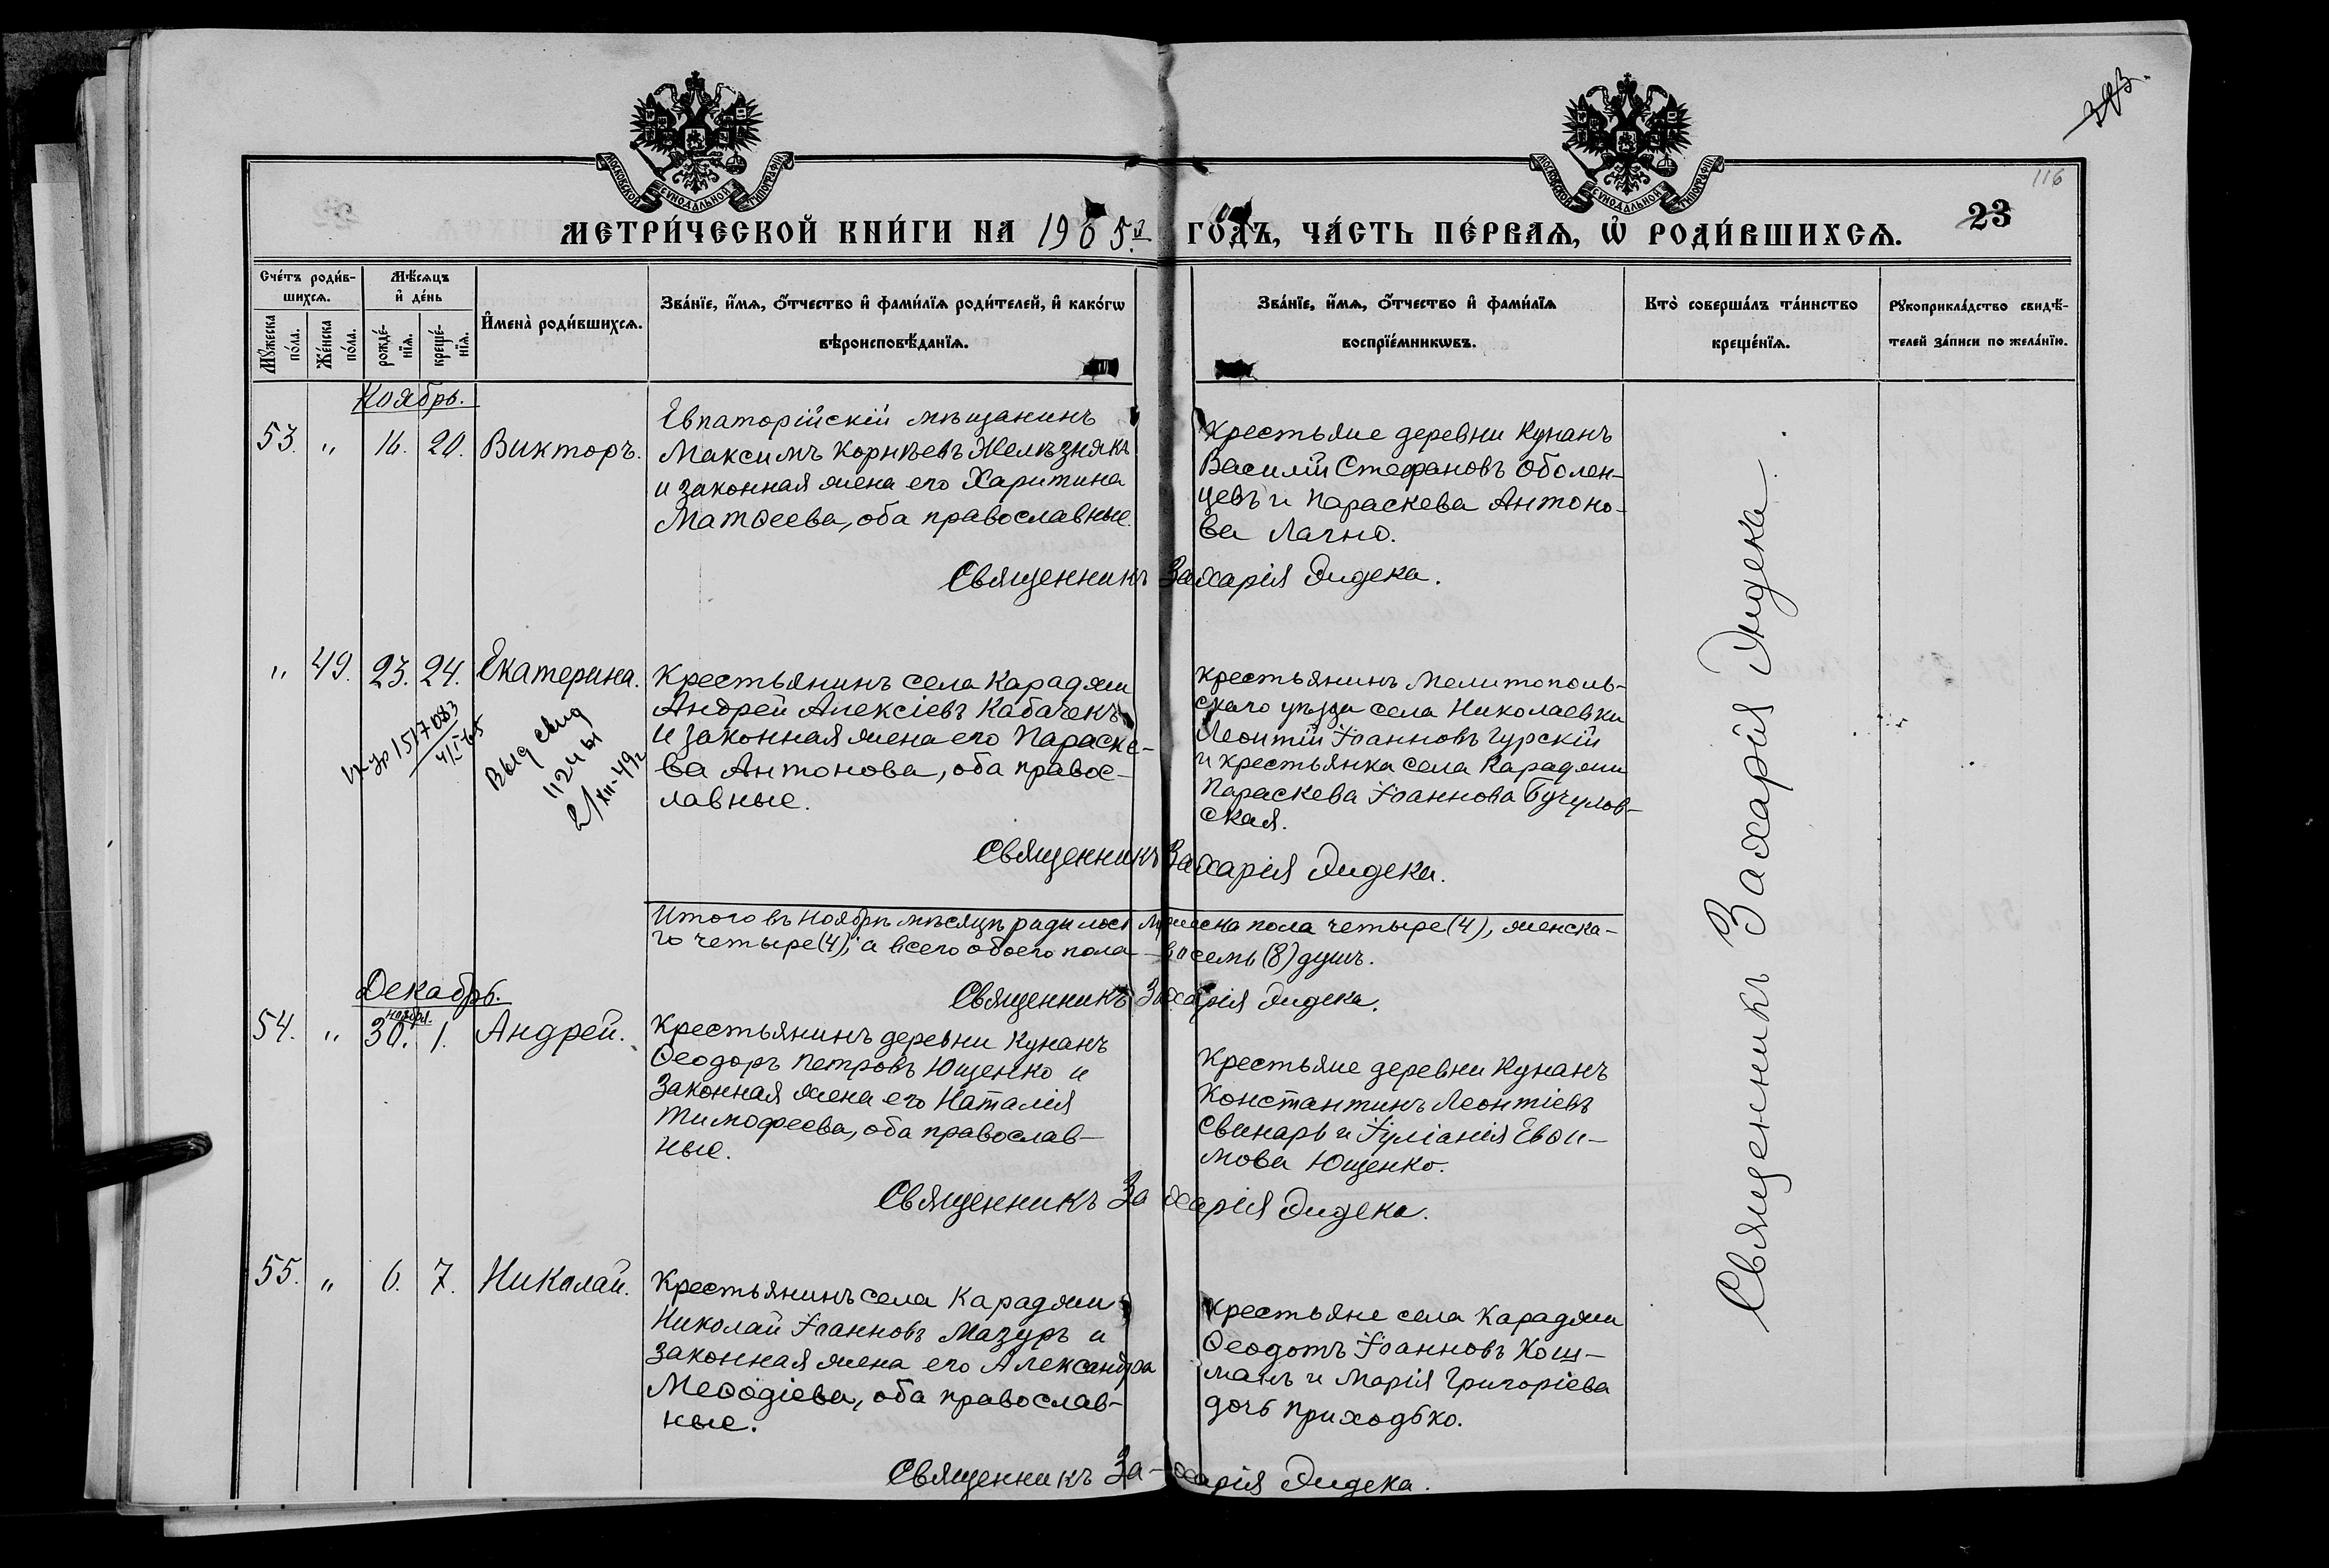 293.
116
23
МОСКОВСКОЙ СѴНОДАЛЬНОЙ ТИПОГРАФІИ
МОСКОВСКОЙ СѴНОДАЛЬНОЙ ТИПОГРАФІИ
МЕТРИ́ЧЕСКОЙ КНИ́ГИ НА 1905й ГО́ДЪ, ЧА́СТЬ ПЕ́РВАѦ, Ѽ РОДИ́ВШИХСѦ.
Сче́тъ роди́в-
шихсѧ.
Мѣ́сѧцъ
и҆ де́нь
Мꙋ́жеска по́ла.
Же́нска по́ла.
рожде́-
нїѧ.
креще́-
нїѧ.
И҆мена̀ роди́вшихсѧ.
Зва́нїе, и҆́мѧ, ѻ҆́тчество и҆ фами́лїѧ роди́телей, и҆ како́гѡ
вѣроисповѣ́данїѧ.
Зва́нїе, и҆́мѧ, ѻ҆́тчество и҆ фами́лїѧ
воспрїе́мникѡвъ.
Кто̀ соверша́лъ та́инство
креще́нїѧ.
Рꙋкоприкла́дство свидѣ́-
телей за́писи по жела́нїю.
Ноябрь.
53. " 16. 20. Викторъ.
Евпаторійскій мѣщанинъ
Максимъ Корнѣевъ Желѣзнякъ
и законная жена его Харитина
Матѳеева, оба православные.
Крестьяне деревни Кунанъ
Василій Стефановъ Оболен-
цевъ и Параскева Антоно-
ва Лачно.
Священникъ Захарія Дидека.
" 49. 23. 24. Екатерина.
Крестьянинъ села Караджи
Андрей Алексіевъ Кабачекъ
и законная жена его Параске-
ва Антонова, оба правос-
лавные.
1517083
4/I-65
Выд свид
1124 ы
21/XII-49г
Крестьянинъ Мелитополь-
скаго уѣзда села Николаевки
Леонтій Іоанновъ Гурскій
и крестьянка села Караджи
Параскева Іоаннова Бучулов-
ская.
Священникъ Захарія Дидека.
Итого въ Ноябрѣ мѣсяцѣ родилось мужеска пола четыре (4), женска-
го четыре (4), а всего обоего пола - восемь (8) душъ.
Священникъ Захарія Дидека.
Декабрь.
ноября.
54. " 30. 1. Андрей.
Крестьянинъ деревни Кунанъ
Ѳеодоръ Петровъ Ющенко и
законная жена его Наталія
Тимофеева, оба православ-
ные.
Крестьяне деревни Кунанъ
Константинъ Леонтіевъ
Свинарь и Іуліанія Евѳи-
мова Ющенко.
Священникъ Захарія Дидека.
55. " 6. 7. Николай.
Крестьянинъ села Караджи
Николай Іоанновъ Мазуръ и
законная жена его Александра
Меѳодіева, оба православ-
ные.
Крестьяне села Караджи
Ѳеодотъ Іоанновъ Кош-
манъ и Марія Григоріева
дочь Приходько.
Священникъ Захарія Дидека.
Священникъ Захарій Дидека.